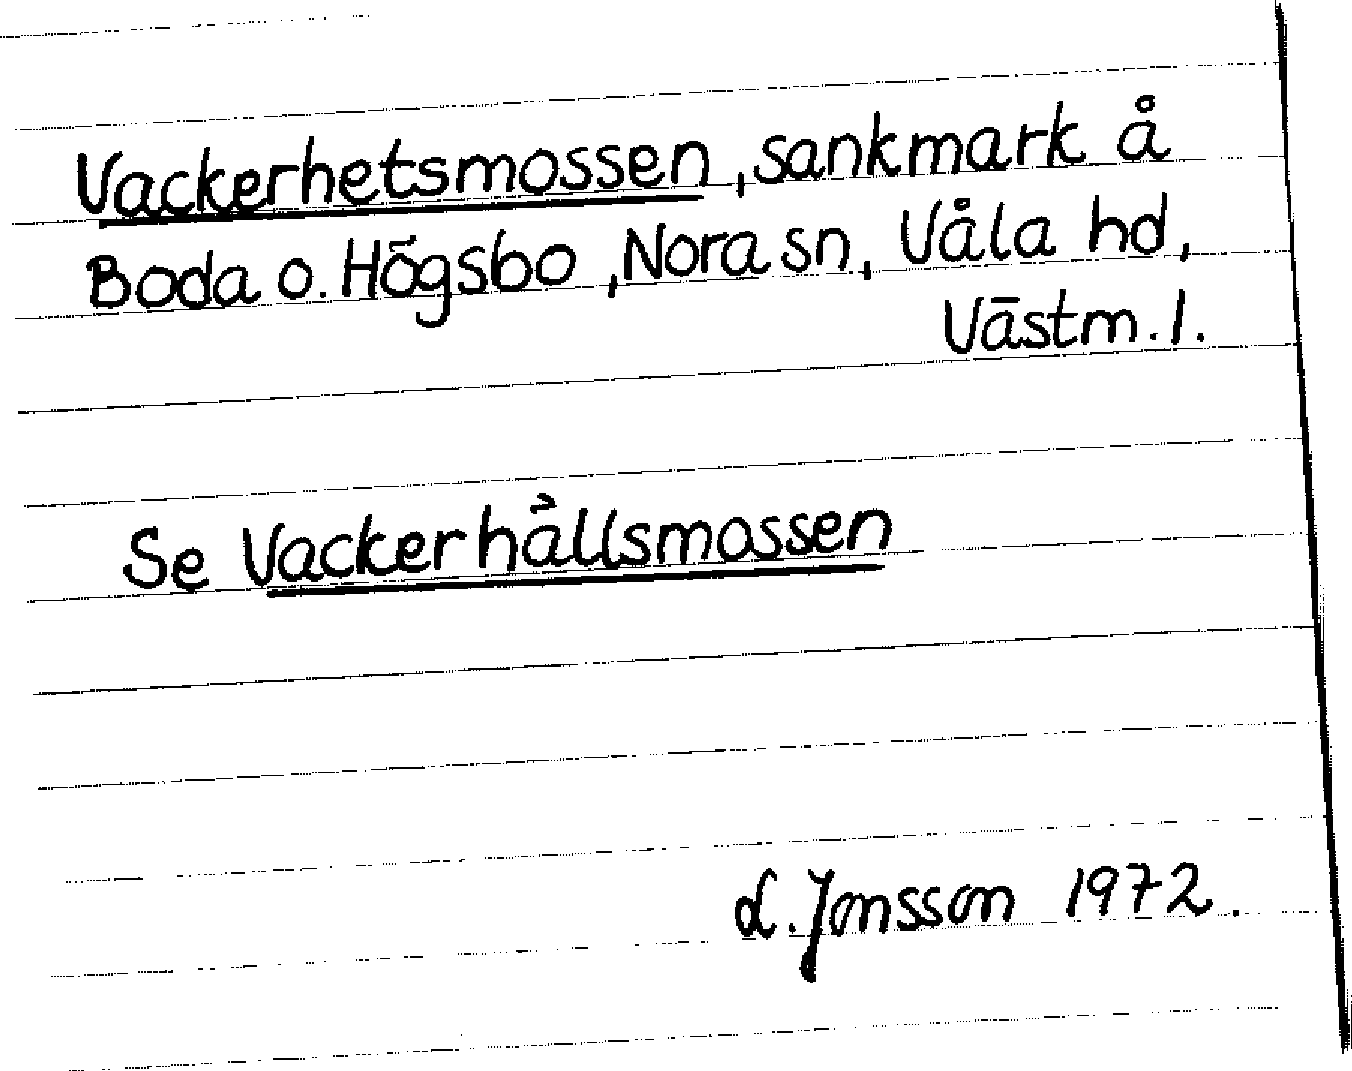 Vackerhetsmossen, sankmark å
Boda o. Högsbo, Nora sn, Våla hd,
Västm. l.
Se Vackerhållsmossen
L. Jonsson 1972.